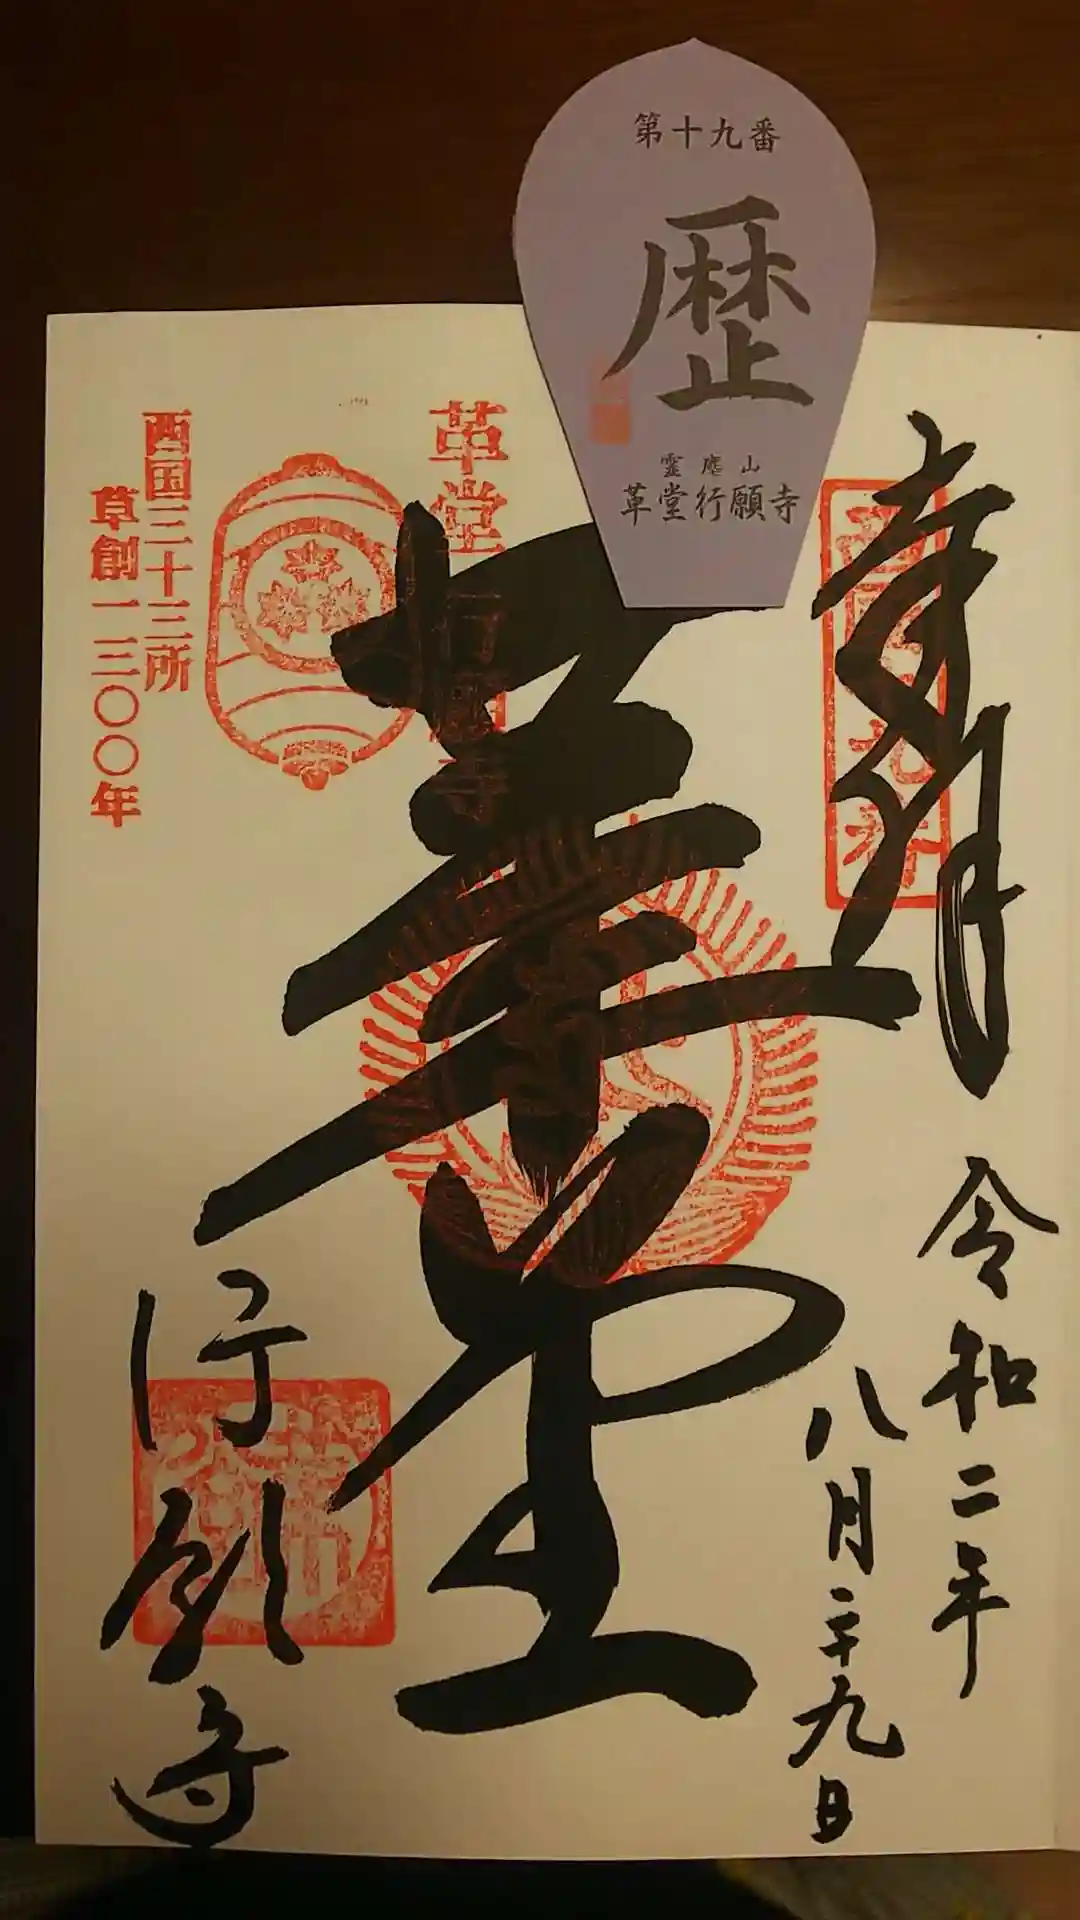 第十九番
歴
靈應山
革堂行願寺
奉拝
令和二年
八月二十九日
革堂
革堂
行願寺
行願寺
西国三十三所
草創一三〇〇年